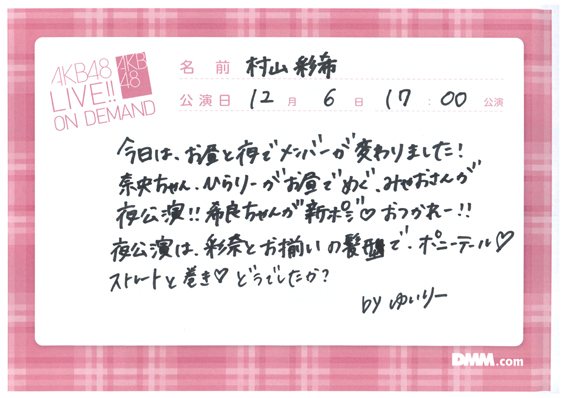 AKB48
LIVE!!
ON DEMAND
AKB
48
名前 村山彩希
公演日 12月 6日 17:00 公演
今日は、お昼と夜でメンバーが変わりました!
奈央ちゃん、ひらりーがお昼でめぐ、みゃおさんが
夜公演!!希良ちゃんが新ポジ♡おつかれー!!
夜公演は、彩奈とお揃いの髪型で、ポニーテール♡
ストレートと巻き♡どうでしたか?
by ゆいりー
DMM.com